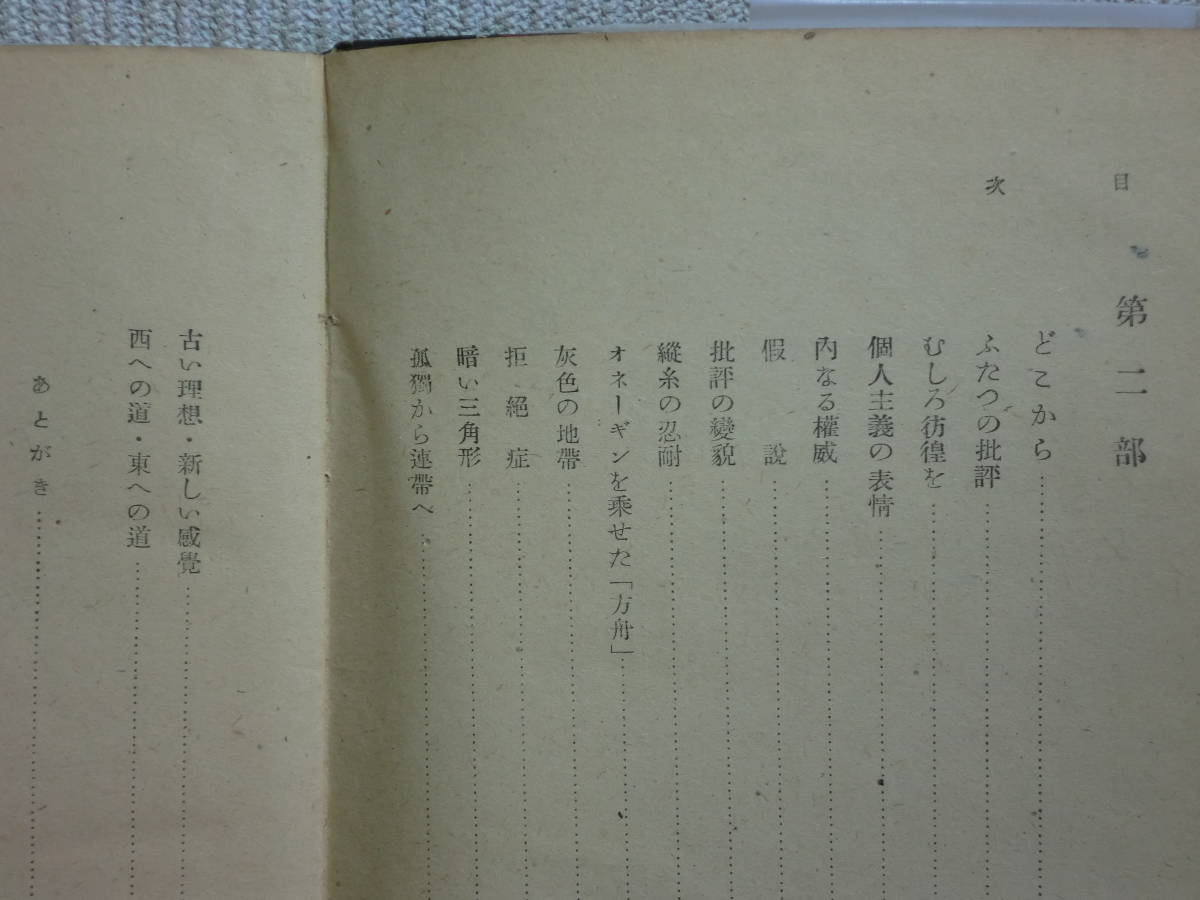 目次
第二部
どこから
ふたつの批評
むしろ彷徨を
個人主義の表情
內なる權威
假說
批評の變貌
縱糸の忍耐
オネーギンを乘せた「方舟」
灰色の地帶
拒絕症
暗い三角形
孤獨から連帶へ
古い理想・新しい感覺
西への道・東への道
あとがき